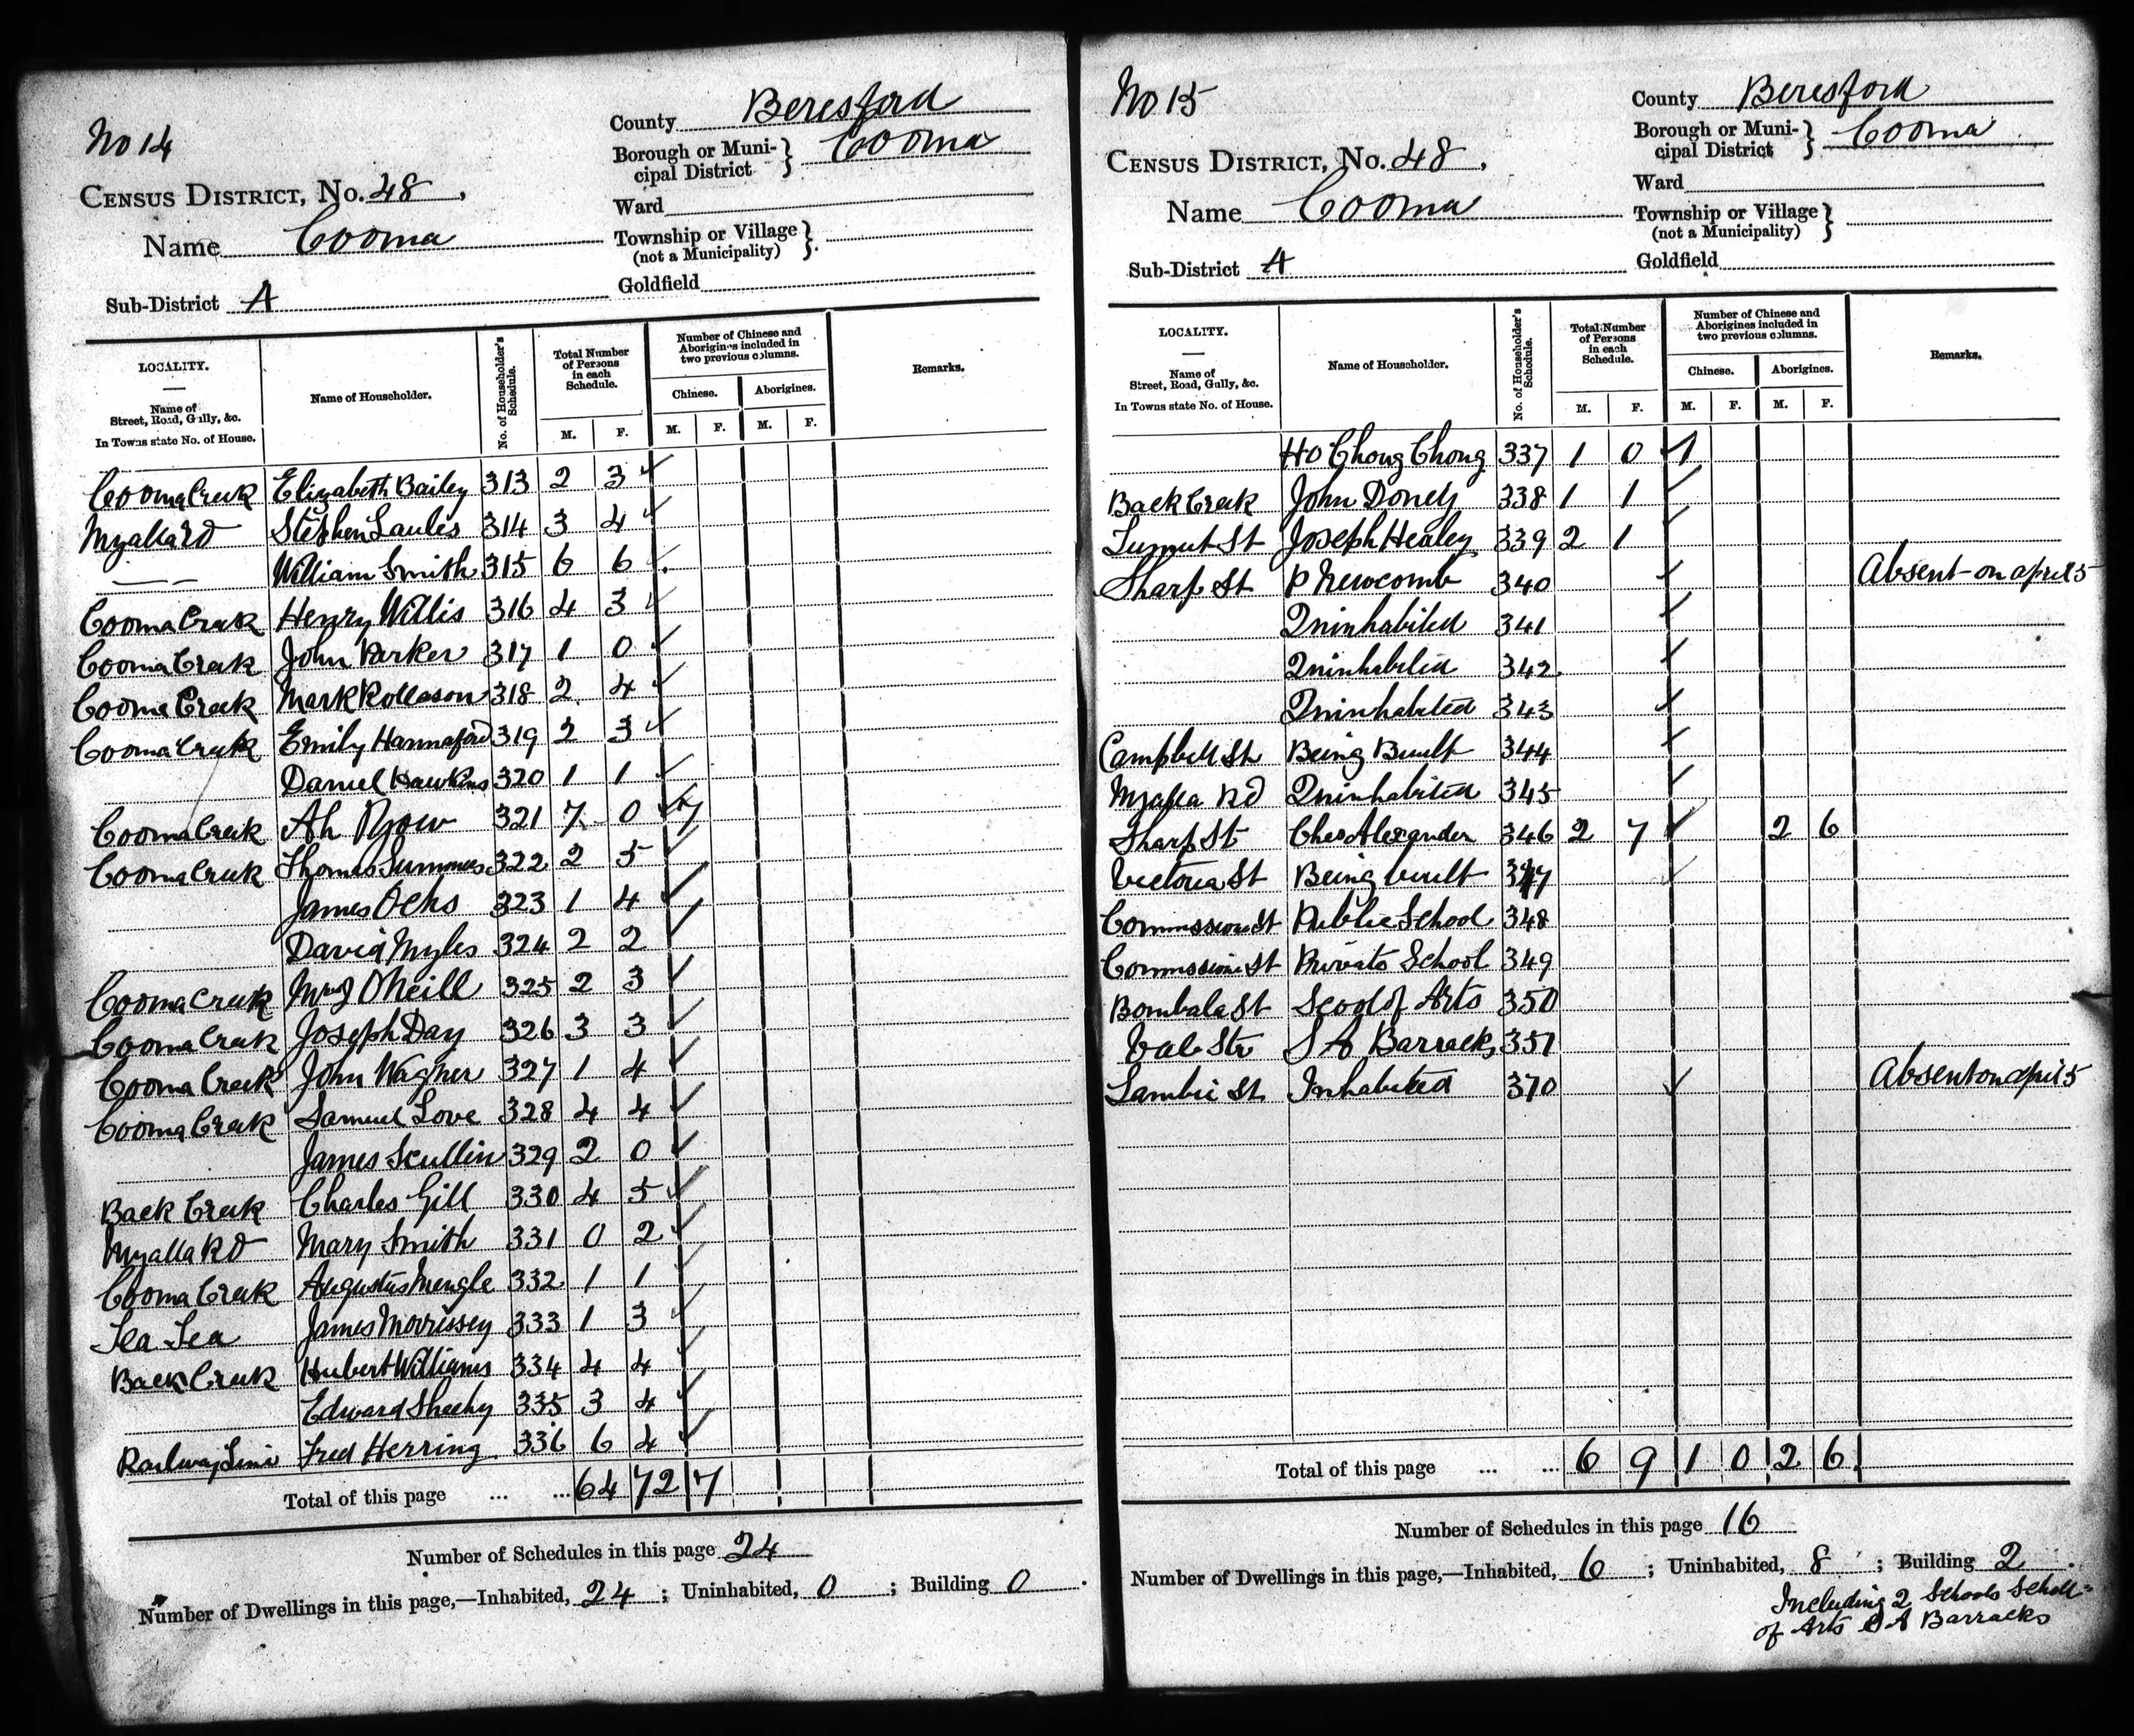 No 14
County Beresford
Borough or Municipal District } Cooma
CENSUS DISTRICT, No. 48,
Ward
Name Cooma
Township or Village (not a Municipality) }
Sub-District A
Goldfield
LOCALITY. Name of Street, Road, Gully, &c. In Towns state No. of House.
Name of Householder.
No. of Householder's Schedule.
Total Number of Persons in each Schedule. M. F.
Number of Chinese and Aborigines included in two previous columns.
Chinese. M. F. Aborigines. M. F.
Remarks.
Cooma Creek Elizabeth Bailey 313 2 3 ✓
Myalla Rd Stephen Laules 314 3 4 ✓
— — William Smith 315 6 6 ✓
Cooma Creek Henry Willis 316 4 3 ✓
Cooma Creek John Parker 317 1 0 ✓
Cooma Creek Mark Rollason 318 2 4 ✓
Cooma Creek Emily Hannaford 319 2 3 ✓
Daniel Hawkins 320 1 1 ✓
Cooma Creek Ah 321 7 0 ✓ 7
Cooma Creek Thomas Summers 322 2 5 ✓
James Ochs 323 1 4 ✓
David Myles 324 2 2 ✓
Cooma Creek O'Neill 325 2 3 ✓
Cooma Creek Joseph Day 326 3 3 ✓
Cooma Creek John Wagner 327 1 4 ✓
Cooma Creek Samuel Love 328 4 4 ✓
James Scullin 329 2 0 ✓
Back Creek Charles Gill 330 4 5 ✓
Myalla Rd Mary Smith 331 0 2 ✓
Cooma Creek Augustus Mengle 332 1 1 ✓
Tea Tea James Morrissey 333 1 3 ✓
Back Creek Hubert Williams 334 4 4 ✓
Edward Sheehy 335 3 4 ✓
Railway Line Fred Herring 336 6 4 ✓
Total of this page ... ... 64 72 7
Number of Schedules in this page 24
Number of Dwellings in this page,—Inhabited, 24 ; Uninhabited, 0 ; Building 0 .
No 15
County Beresford
Borough or Municipal District } Cooma
CENSUS DISTRICT, No. 48,
Ward
Name Cooma
Township or Village (not a Municipality) }
Sub-District A
Goldfield
LOCALITY. Name of Street, Road, Gully, &c. In Towns state No. of House.
Name of Householder.
No. of Householder's Schedule.
Total Number of Persons in each Schedule. M. F.
Number of Chinese and Aborigines included in two previous columns.
Chinese. M. F. Aborigines. M. F.
Remarks.
Ho Chong Chong 337 1 0 ✓ 1
Back Creek John Donely 338 1 1 ✓
Tumut St Joseph Healey 339 2 1 ✓
Sharp St P Newcomb 340 ✓ Absent on april 5
Uninhabited 341 ✓
Uninhabited 342 ✓
Uninhabited 343 ✓
Campbell St Being Built 344 ✓
Myalla Rd Uninhabited 345 ✓
Sharp St Chas Alexander 346 2 7 ✓ 2 6
Victoria St Being built 347 ✓
Commission St Public School 348
Commission St Private School 349
Bombala St Scool of Arts 350
Vale Str S A Barracks 351
Lambie St Inhabited 370 ✓ Absent on april 5
Total of this page ... ... 6 9 1 0 2 6
Number of Schedules in this page 16
Number of Dwellings in this page,—Inhabited, 6 ; Uninhabited, 8 ; Building 2 .
Including 2 Schools
of Arts S A Barracks